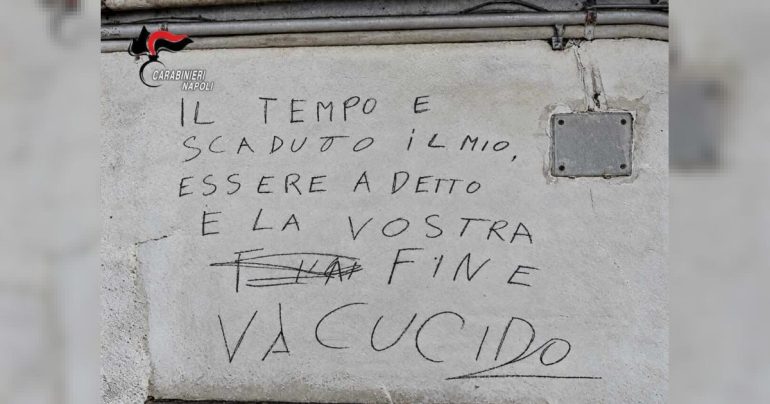 CARABINIERI
NAPOLI
IL TEMPO E
SCADUTO iL MIO,
ESSERE A DETTO
E LA VOSTRA
FINE
VÀ CUCIDO